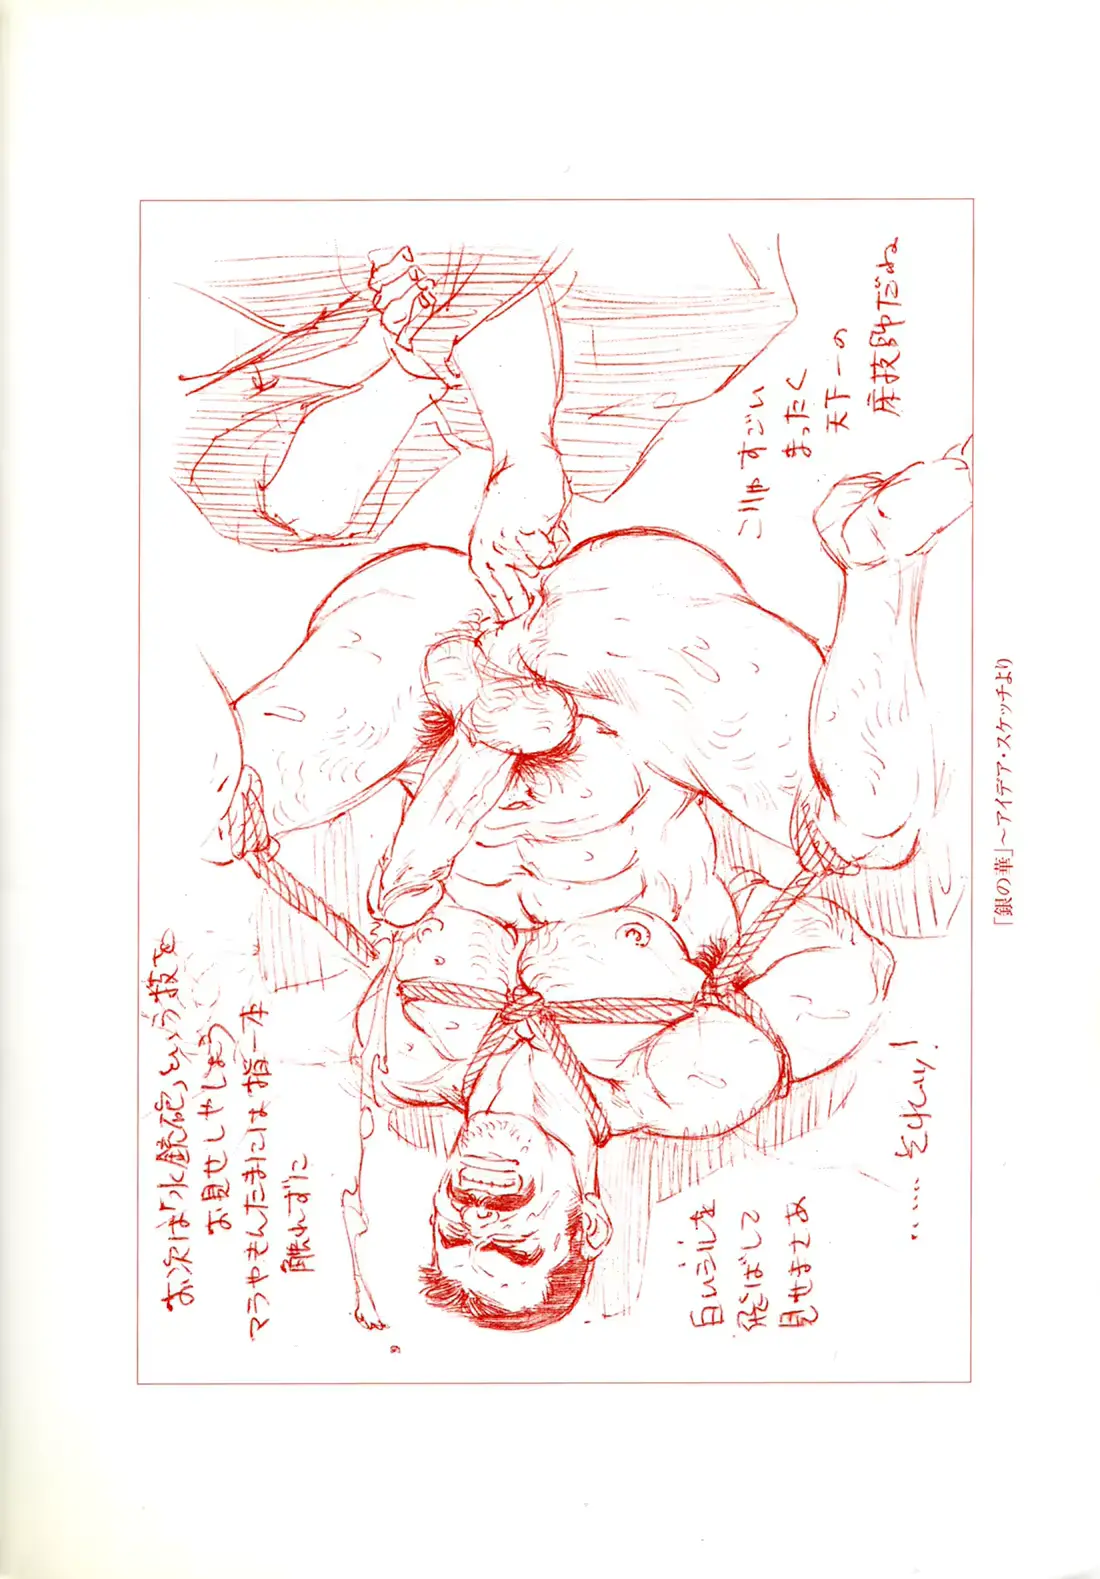 こりゃすごい
まったく
天下一の
麻技師だね
お次は「水鉄砲」という技を
お見せしやしょう
マラやもんたまには指一本
触れずに
白いシルを
飛ばして
見せまさあ
……それッ!
「銀の華」〜アイデア・スケッチより